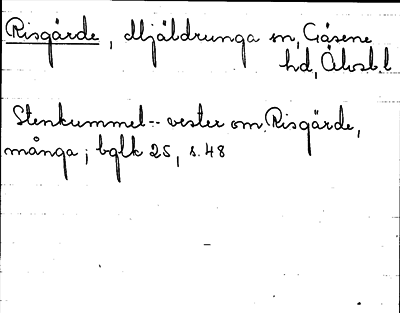 Risgärde, Mjäldrunga sn, Gäsene
hd, Älvsb. l
Stenkummel -- vester om Risgärde,
många; bglk 25, s. 48